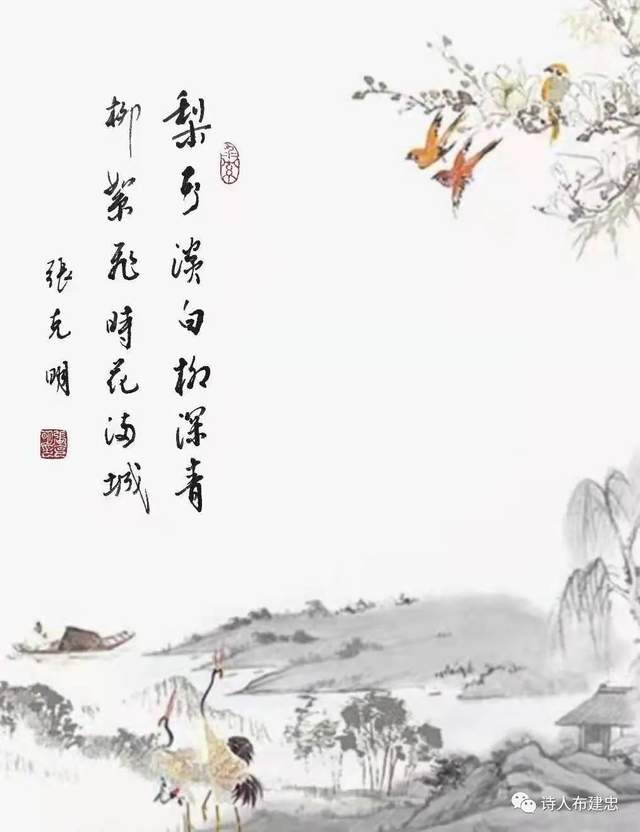 梨花淡白柳深青
柳絮飛時花满城
張克明
诗人布建忠